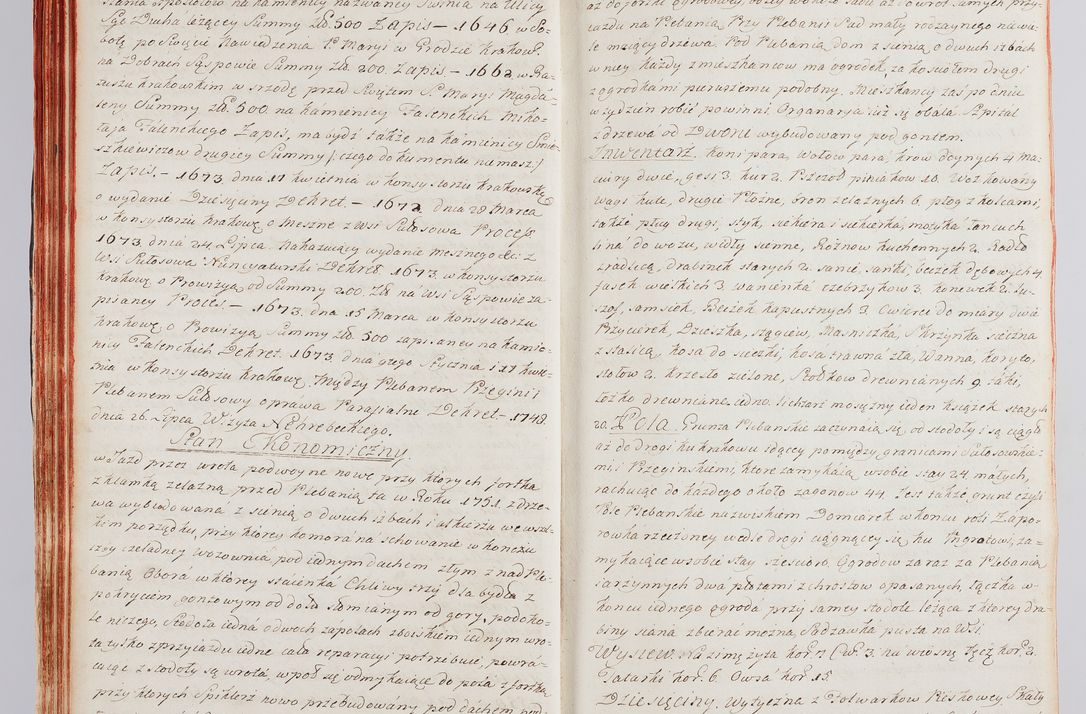 Sgo Ducha leżącey Summy Zł. 500 Zapis – 1646 w So=
botę po Swięcie Nawiedzenia P. Maryi w Grodzie Krakow:
na Dobrach Sąspowie Summy Zł. 200. Zapis. – 1662 w Ra=
tuszu Krakowskim w srzodę przed Swiętem S. Maryi Magda=
leny Summy Zł. 500 na Kamienicy Falenckich Miko=
łaja Falenckiego Zapis, ma bydź także na Kamienicy
szkiewiczow drugiey Summy /: czego dokumentu niemasz :/
Zapis. – 1673 dnia 17 Kwietnia w Konsystorzu Krakowskᵐ
o wydanie Dziesięciny Dekret. – 1672 dnia 28 Marca
w Konsystorzu Krakowᵐ o Meszne z wsi Sułosowa Process
1673 dnia 24 Lipca. Nakazuiący wydanie mesznego &c: z
Wsi Sułosowa Nuncyaturski Dekret. 1673 w Konsystorzu
Krakowᵐ o Prowizyą od Summy 200. Zł. na Wsi Sąspowie za=
pisaney Proces. – 1673. dnia 15 Marca w Konsystorzu
Krakowᵐ o Prowizyą Summy Zł. 500 zapisaney na Kamie=
nicy Falenckich Dekret. 1673 dnia 9tego Stycznia i 27 Kwie=
tnia w Konsystorzu Krakowᵐ Między Plebanem Przeginᵐ i
Plebanem Sułosowy o prawa Parafialne Dekret. – 1748.
dnia 26. Lipca Wizyta Nchrebeckiego.
Stan Ekonomiczny.
wJazd przez wrota podwoyne nowe przy których fortka
z klamką żelazną przed Plebanią ta w Roku 1751. z drze=
wa wybudowana z sienią o dwuch izbach i alkierzu we wszel=
kim porządku, przy ktorey komora na schowanie w koncu
izby czeladney Wozownia pod iednym dachem złym z nad Ple=
banią Obora w ktorey staienka Chliwy trzy dla bydła z
pokryciem gontowym od dołu słomianym od gory, podoko=
le niczego, Stodoła iedna o dwoch zapolach z boiskiem iednym wro=
ta tylko z przyiazdu iedne cała reparacyi potrzebuie, powra=
caiąc z stodoły są wrota, wpoł się odmykaiące do pola z fortką
przy ktorych Spikierz nowo przebudowany pod dachem pod=
iazdu na Plebanią. Przy Plebanii Sad mały rodzaynego na wi=
le maiący drzewa. Pod Plebanią dom z sienią o dwuch izbach
w niey każdy z mieszkancow ma ogrodek, za kosciołem drugi
z ogrodkami pierwszemu podobny. Mieszkancy zaś po dniu
w tydzień robić powinni. Organarya iuż się obala. Szpital
z drzewa od Dworu wybudowany pod gontem.
Inwentarz. Koni para, Wołow para, krow doynych 4. Ma=
ciory dwie, gęsi 3. kur 2. Pszczoł pniakow 16. Woz kowany
wasąg kute, drugie Prożne, bron żelaznych 6. pług z kolcami,
także pług drugi, styk, siekiera i siekierka, motyka łancuch
lina do wozu, widły sienne, Rożnow kuchennych 2. Radło
z radlicą, drabinek starych 2. sanie, sanki, beczek dębowych 4.
fasek wielkich 3. wanienka czebrzykow 3. konewek 2. Su=
szof, samsiek, Beczek kapustnych 3. Cwierce do miary dwie
Przycierek, Dzieszka, stągiew, Maśniczka, Skrzynka sieczna
z stalicą, kosa do sieczki, kosa trawna zła, Wanna, koryto,
stołow 2. krzesło zielone, Stołkow drewnianych 9. Sąki,
Łożko drewniane iedno. lichtarz mosiężny ieden książek starych
20. Pola. Grunta Plebanskie zaczynaią się od stodoły i są ciągłe
aż do drogi ku Krakowu idącey pomiędzy granicami Sułosowskie=
mi, i Przeginskiemi, ktore zamykaią w sobie stay 24 małych,
rachuiąc do każdego około zagonow 44. Jest także grunt czyli
Pole Plebanskie nazwiskiem Domiarek w koncu roli Zapo=
rowka rzeczoney wedle drogi ciągnącey się ku Jngratowi, za=
mykaiące w sobie stay sześcioro. Ogrodow zaraz za Plebanią
iarzynnych dwa płotami z chrostow opasanych, łączka w
koncu iednego ogroda przy samey stodole leżąca z ktorey dra=
biny siana zbierać można, Sadzawka pusta na Wsi.
Wysiew. Na zimę żyta kor. 7. Cw. 3. na wiosnę Jęcz. kor. 2.
Tatarki kor. 6. Owsa kor. 15
Dziesięciny. Wytyczna z Folwarkow Pieskowey Skały